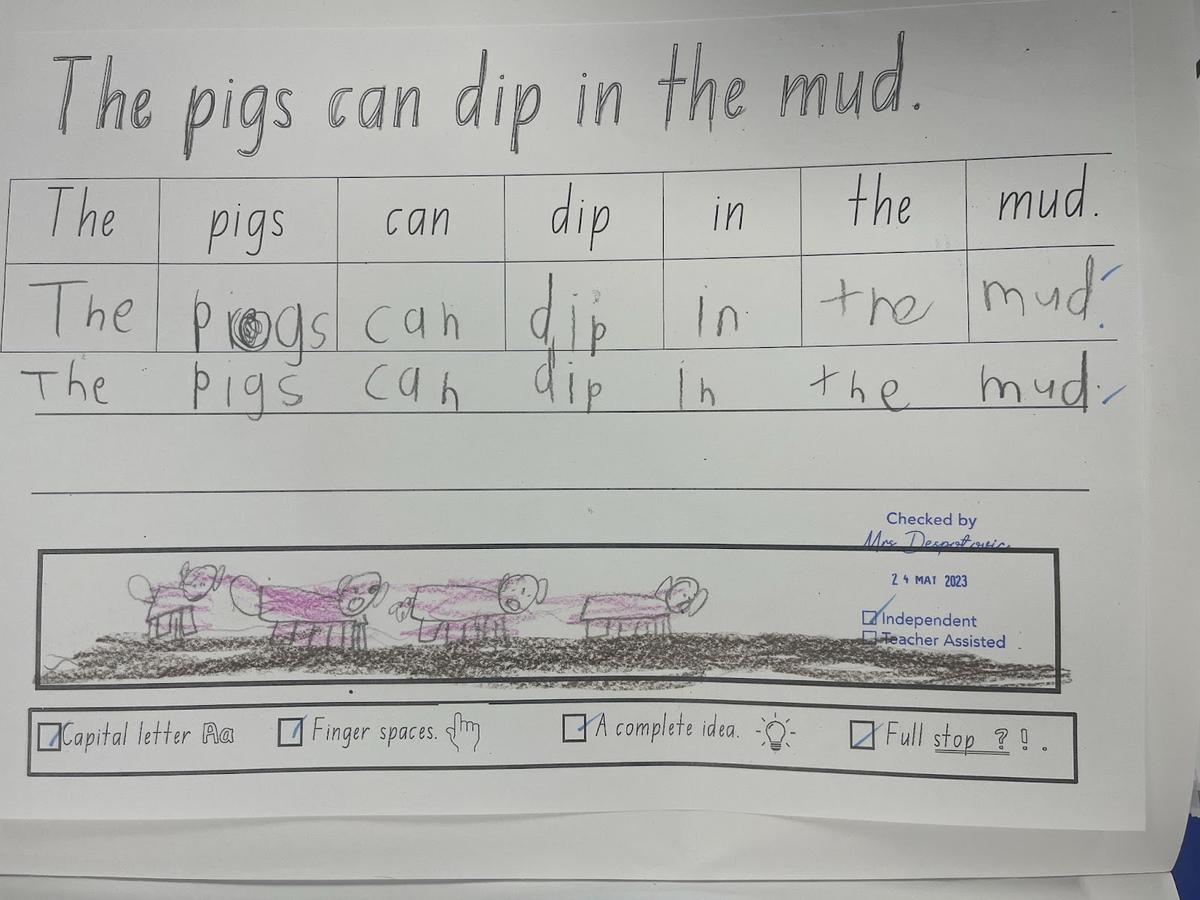 The pigs can dip in the mud.
The pigs can dip in the mud.
The progs can dip in the mud.
The pigs can dip in the mud.
Checked by
Mrs Despotovic
24 MAY 2023
Independent
Teacher Assisted
Capital letter Aa Finger spaces. A complete idea. Full stop ? ! .